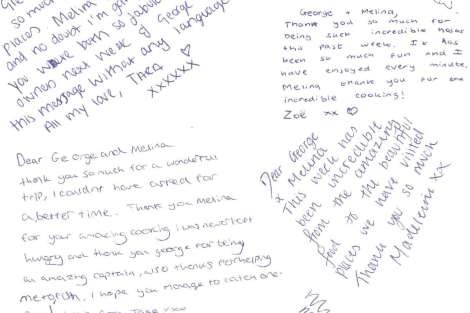 so much
places. Melina
and no doubt I'm
you were both so fabulous
owners next week if George
this message without any language
All my love, Thea
xxxxxx
George + Melina,
Thank you so much for
being such incredible hosts
this past week. It has
been so much fun and I
have enjoyed every minute.
Melina thank you for the
incredible cooking!
Zoë xx
Dear George and Melina
thank you so much for a wonderful
trip, I couldn't have asked for
a better time. Thank you Melina
for your amazing cooking I was never left
hungry and thank you george for being
an amazing captain, also thanks for helping
me I hope you manage to catch one
Dear George
+ Melina
This week has
been incredible
from the amazing
food to the beautiful
places we have visited
Thank you so much
Madeleine xx